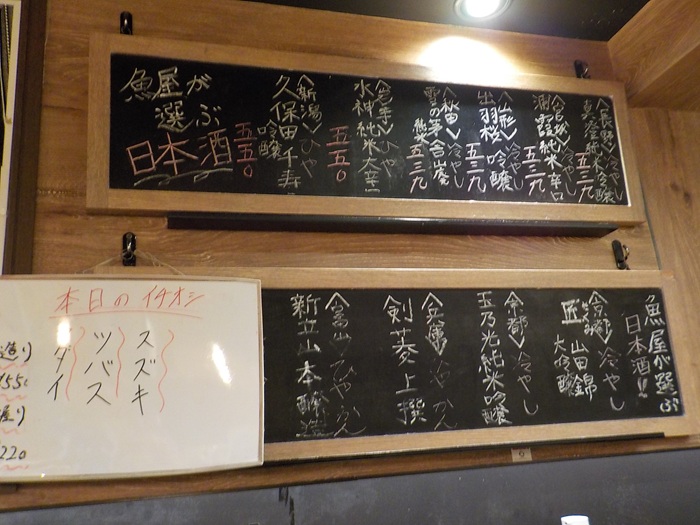 魚屋が
選ぶ
日本酒
〈新潟〉ひや
久保田千寿
吟醸
五五〇
〈岩手〉ひや
水神純米大辛口
五五〇
〈秋田〉冷やし
純米
五三九
〈山形〉冷やし
出羽桜 吟醸
五三九
〈宮城〉冷やし
純米辛口
五三九
〈長野〉冷やし
純米吟醸
五三九
魚屋が選ぶ
日本酒!!
〈京都〉冷やし
匠 山田錦
大吟醸
〈京都〉冷やし
玉乃光純米吟醸
〈兵庫〉ひや かん
剣菱上撰
〈富山〉ひや かん
新立山本醸造
本日のイチオシ
スズキ
ツバス
タイ
造り
550
握り
220